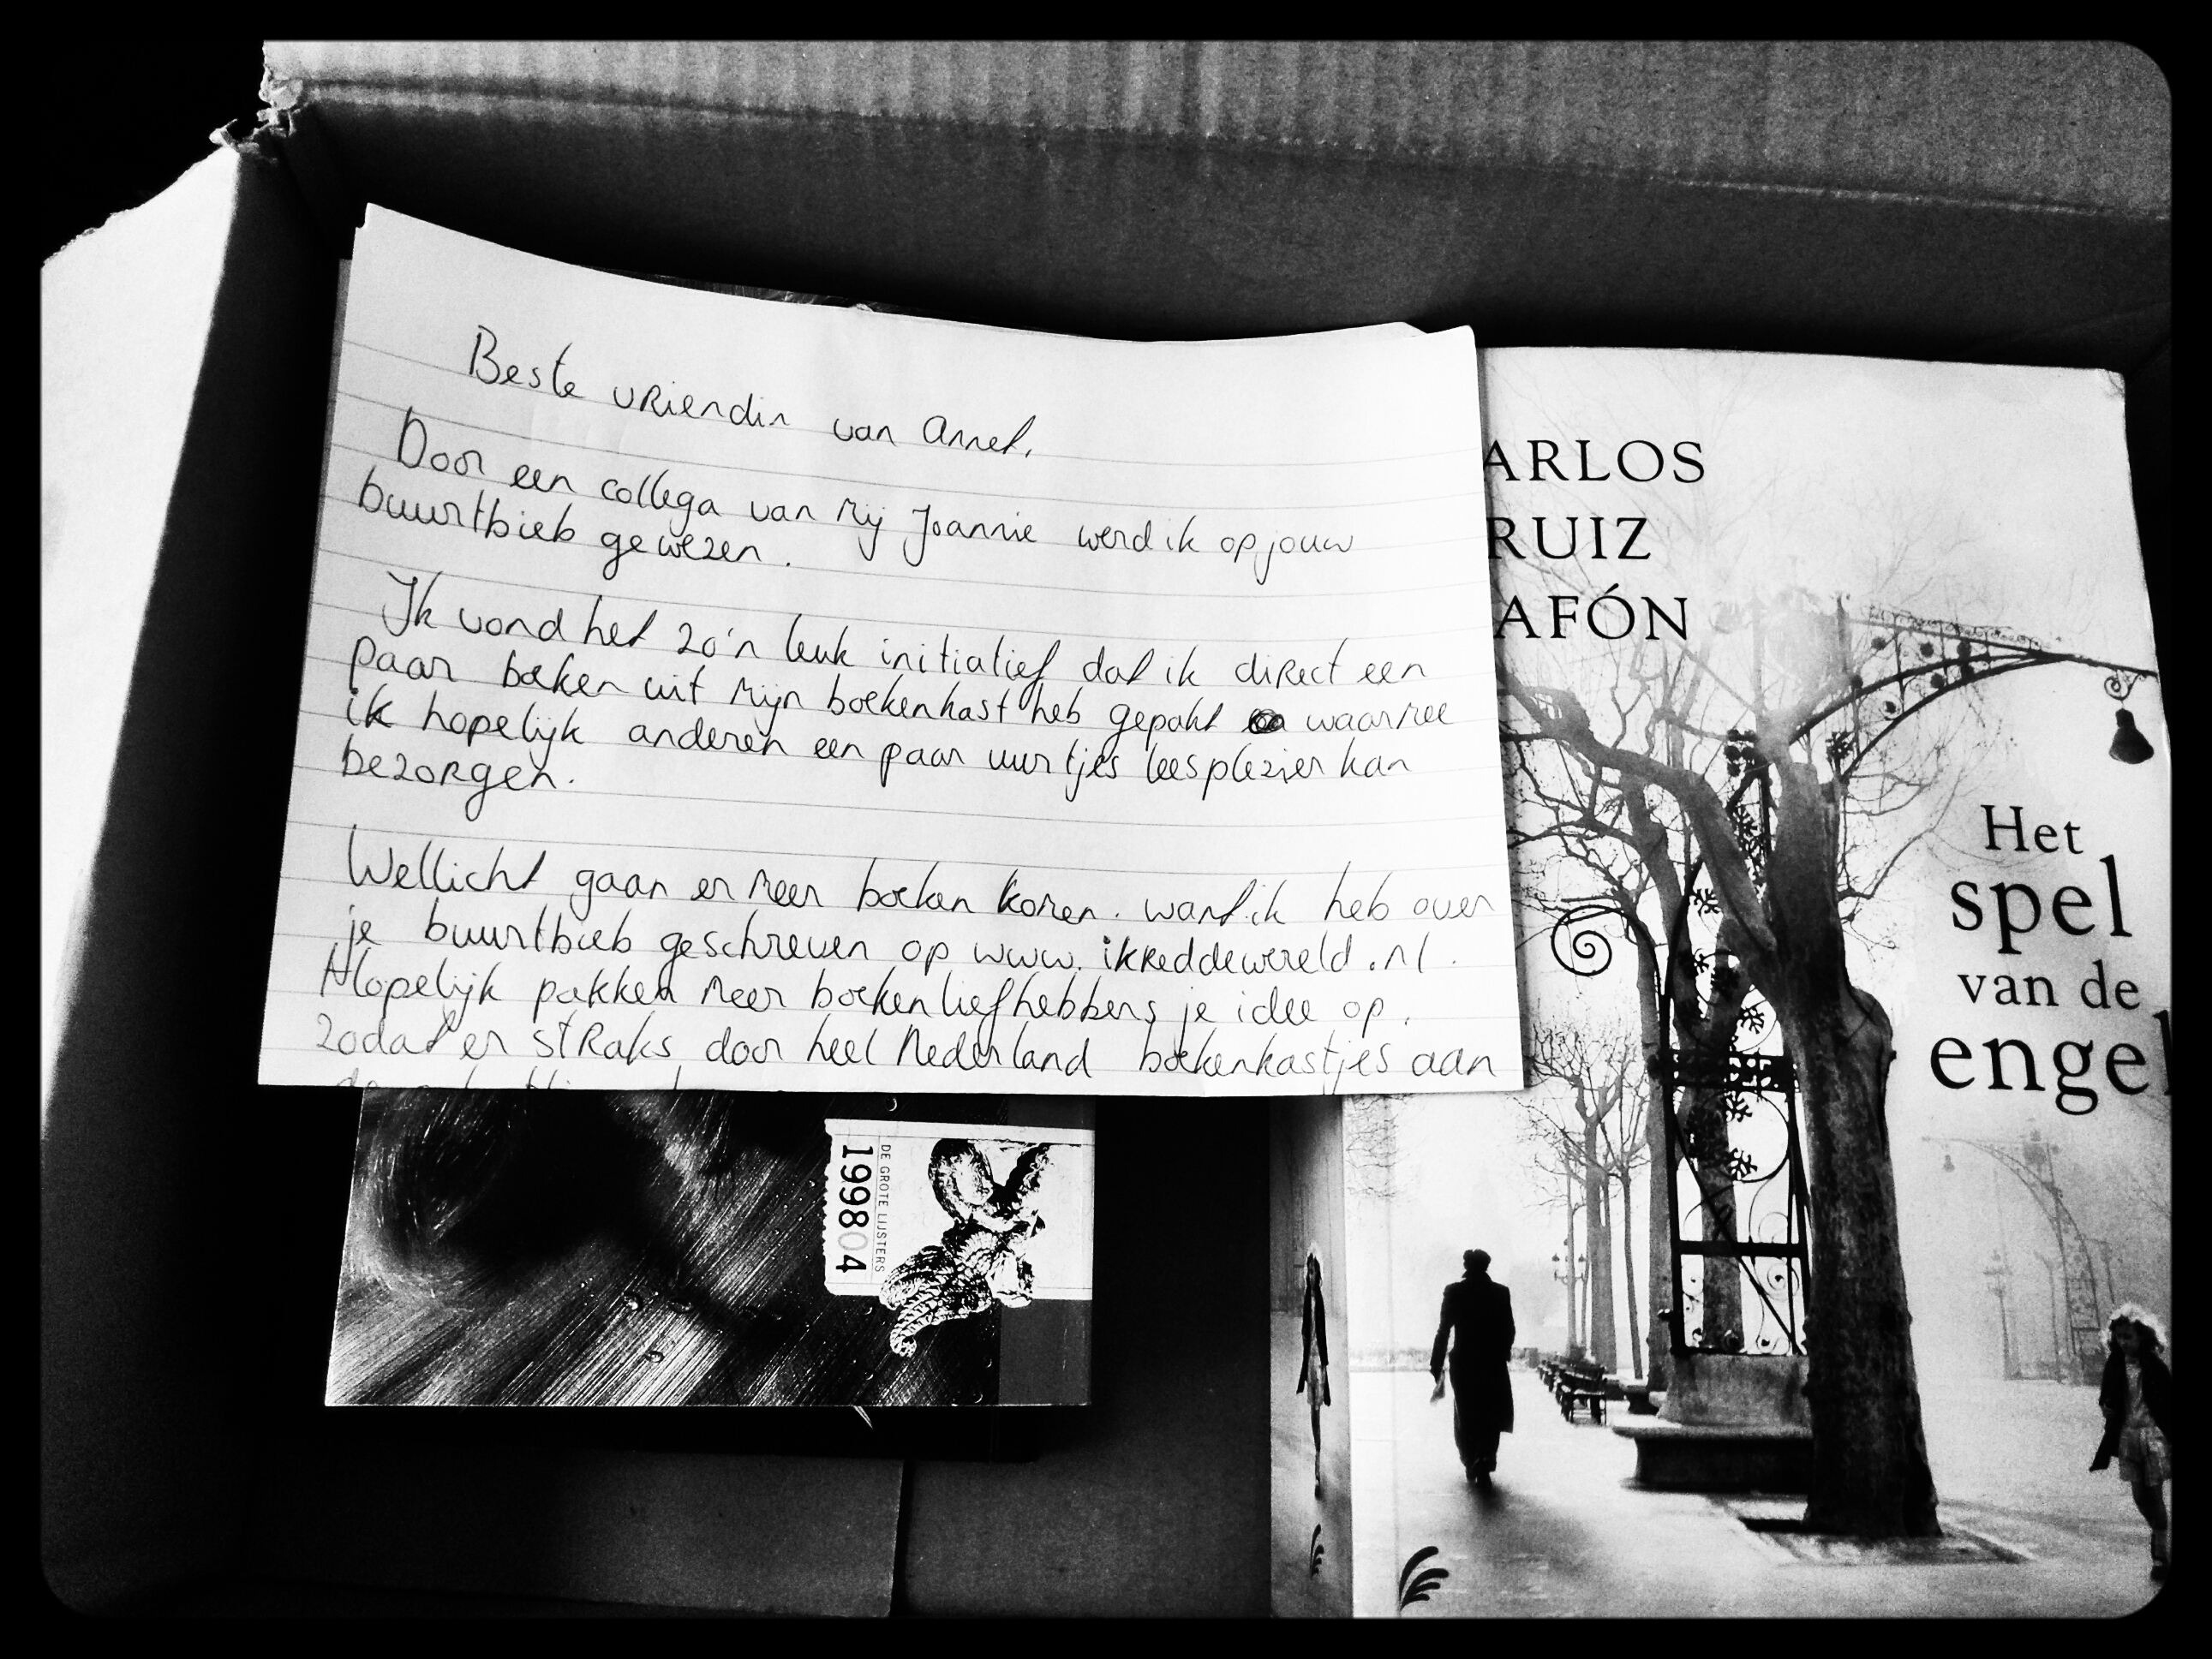 Beste vriendin van Annet,
Door een collega van mij Joannie werd ik op jouw
buurtbieb gewezen.
Ik vond het zo'n leuk initiatief dat ik direct een
paar boeken uit mijn boekenkast heb gepakt waarmee
ik hopelijk anderen een paar uurtjes leesplezier kan
bezorgen.
Wellicht gaan er meer boeken komen. want ik heb over
je buurtbieb geschreven op www.ikreddewereld.nl.
Hopelijk pakken meer boekenliefhebbers je idee op.
zodat er straks door heel Nederland boekenkastjes aan
ARLOS
RUIZ
AFÓN
Het
spel
van de
engel
DE GROTE LIJSTERS
199804